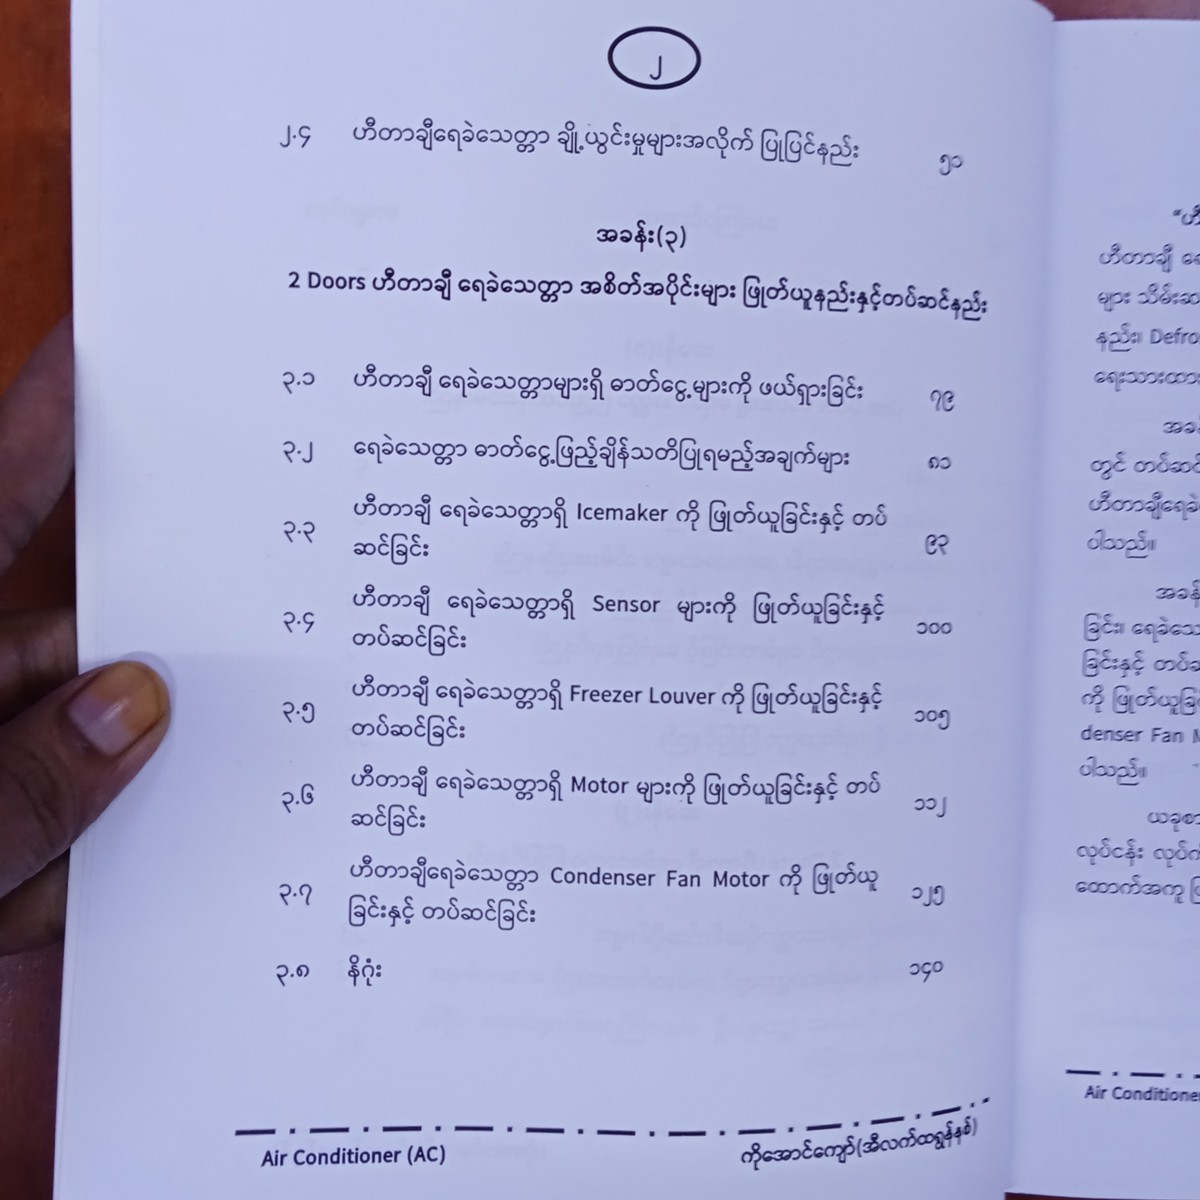 ၂
၂.၄ ဟီတာချီရေခဲသေတ္တာ ချို့ယွင်းမှုများအလိုက် ပြုပြင်နည်း ၅၁
အခန်း(၃)
2 Doors ဟီတာချီ ရေခဲသေတ္တာ အစိတ်အပိုင်းများ ဖြုတ်ယူနည်းနှင့်တပ်ဆင်နည်း
၃.၁ ဟီတာချီ ရေခဲသေတ္တာများရှိ ဓာတ်ငွေ့များကို ဖယ်ရှားခြင်း ၇၉
၃.၂ ရေခဲသေတ္တာ ဓာတ်ငွေ့ဖြည့်ချိန်သတိပြုရမည့်အချက်များ ၈၁
၃.၃ ဟီတာချီ ရေခဲသေတ္တာရှိ Icemaker ကို ဖြုတ်ယူခြင်းနှင့် တပ်
ဆင်ခြင်း ၉၃
၃.၄ ဟီတာချီ ရေခဲသေတ္တာရှိ Sensor များကို ဖြုတ်ယူခြင်းနှင့်
တပ်ဆင်ခြင်း ၁၀၀
၃.၅ ဟီတာချီ ရေခဲသေတ္တာရှိ Freezer Louver ကို ဖြုတ်ယူခြင်းနှင့်
တပ်ဆင်ခြင်း ၁၀၅
၃.၆ ဟီတာချီ ရေခဲသေတ္တာရှိ Motor များကို ဖြုတ်ယူခြင်းနှင့် တပ်
ဆင်ခြင်း ၁၁၂
၃.၇ ဟီတာချီရေခဲသေတ္တာ Condenser Fan Motor ကို ဖြုတ်ယူ
ခြင်းနှင့် တပ်ဆင်ခြင်း ၁၂၅
၃.၈ နိဂုံး ၁၄၀
Air Conditioner (AC) ကိုအောင်ကျော်(အီလက်ထရွန်နစ်)
ဟီတာချီ
များ
နည်း၊ Defro
တွင် တပ်ဆင်
ပါသည်။
ခြင်း၊
ခြင်းနှင့်
ကို
denser Fan
ပါသည်။
လုပ်ငန်း
ထောက်အကူ
Air Conditione